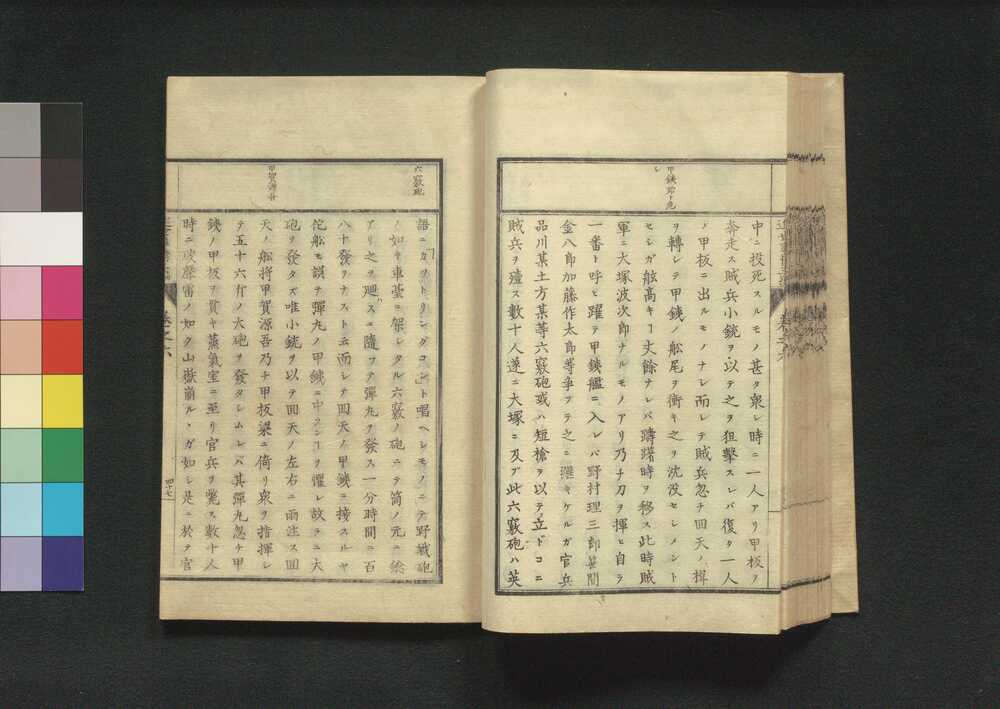 中ニ投死スルモノ甚タ衆シ時ニ一人アリ甲板ヲ
奔走ス賊兵小銃ヲ以テ之ヲ狙擊スレバ復タ一人
ノ甲板ニ出ルモノナシ而シテ賊兵忽チ回天ノ楫
ヲ轉シテ甲鉄ノ船尾ヲ衝キ之ヲ沈沒セシメント
セシガ舷高キ一丈餘ナレバ躊躇時ヲ移ス此時賊
軍ニ大塚波次郎ナルモノアリ乃チ刀ヲ揮ヒ自ラ
一番ト呼ヒ躍テ甲鉄艦ニ入レバ野村理三郎笹間
金八郎加藤作太郎等爭フテ之ニ繼キケルガ官兵
品川某土方某等六竅砲或ハ短槍ヲ以テ立ドコニ
賊兵ヲ殪ス數十人遂ニ大塚ニ及ブ此六竅砲ハ英
六竅砲
語ニ「カツトリングコン」ト唱ヘシモノニテ野戰砲
ノ如キ車臺ニ架シタル六竅ノ砲ニテ筒ノ元ニ
アリ之ヲ廻スニ隨フテ彈丸ヲ發ス一分時間ニ百
八十發ヲナスト云而シテ回天ノ甲鉄ニ接スルヤ
佗船モ誤テ彈丸ノ甲鉄ニ中ランヿヲ懼レ故ラニ大
砲ヲ發タズ唯小銃ヲ以テ回天ノ左右ニ雨注ス回
天ノ船将甲賀源吾乃チ甲板梁ニ倚リ衆ヲ指揮シ
テ五十六斤ノ大砲ヲ發タシムレバ其彈丸忽チ甲
鉄ノ甲板ヲ貫キ蒸氣室ニ至リ官兵ヲ斃ス數十人
時ニ砲聲雷ノ如ク山嶽崩ルヽガ如シ是ニ於テ官
甲賀源吾
四十七